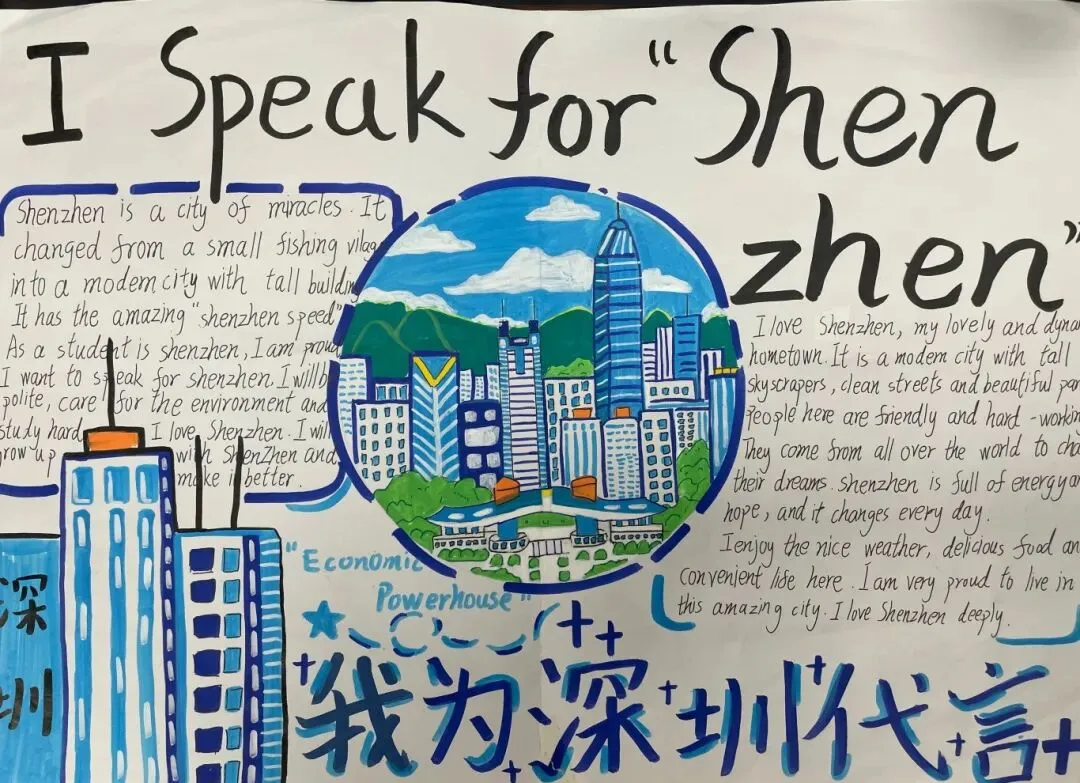 I Speak for "Shen
zhen"
Shenzhen is a city of miracles. It
changed from a small fishing vilag
into a modern city with tall building
It has the amazing "shenzhen speed"
As a student is shenzhen, I am proud
I want to speak for shenzhen. I will b
polite, care for the environment and
study hard I love Shenzhen. I will
row up with ShenZhen and
make it better.
I love Shenzhen, my lovely and dyna
hometown. It is a modern city with tall
skyscrapers, clean streets and beautiful par
People here are friendly and hard-workin
They come from all over the world to cha
their dreams. Shenzhen is full of energy an
hope, and it changes every day.
I enjoy the nice weather, delicious food an
convenient life here. I am very proud to live in
this amazing city. I love Shenzhen deeply.
"Economic
Powerhouse"
深圳
我为深圳代言